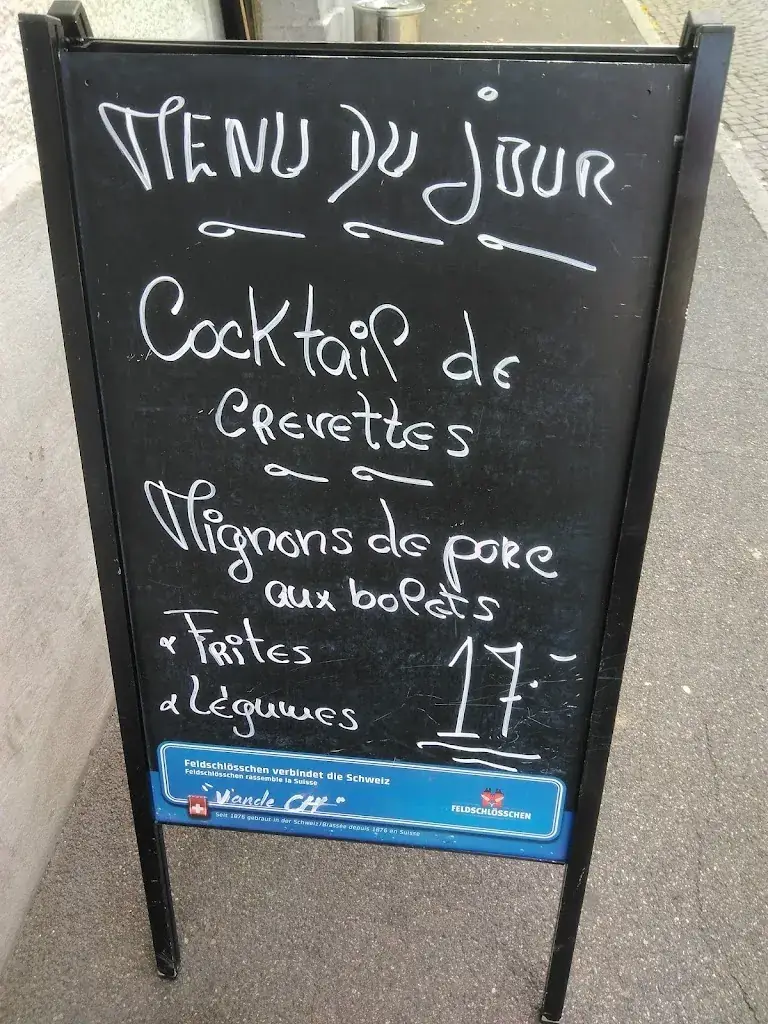 MENU DU jOUR
Cocktail de
CREVETTES
Mignons de porc
aux bolets
& FRITES
& Légumes
17.-
Feldschlösschen verbindet die Schweiz
Feldschlösschen rassemble la Suisse
"Viande CH"
FELDSCHLÖSSCHEN
Seit 1876 gebraut in der Schweiz/Brassée depuis 1876 en Suisse